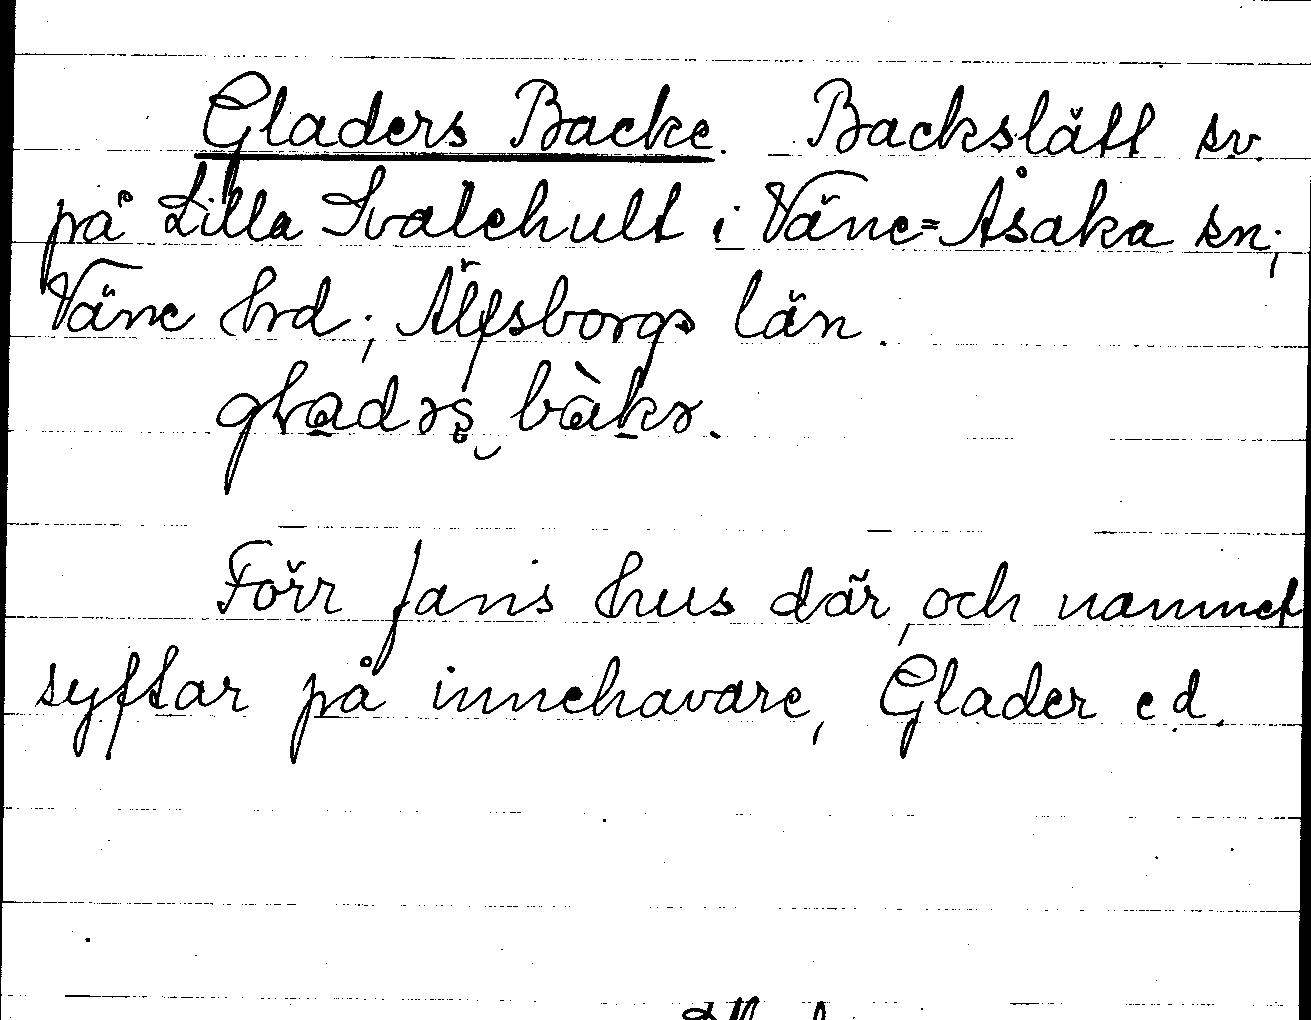 Gladers Backe. Backslätt sv.
på Lilla Svalehult i Väne=Åsaka sn;
Väne hrd; Älfsborgs län.
gladəs̥ bàkə.
Förr fans hus där, och namnet
syftar på innehavare, Glader e.d.